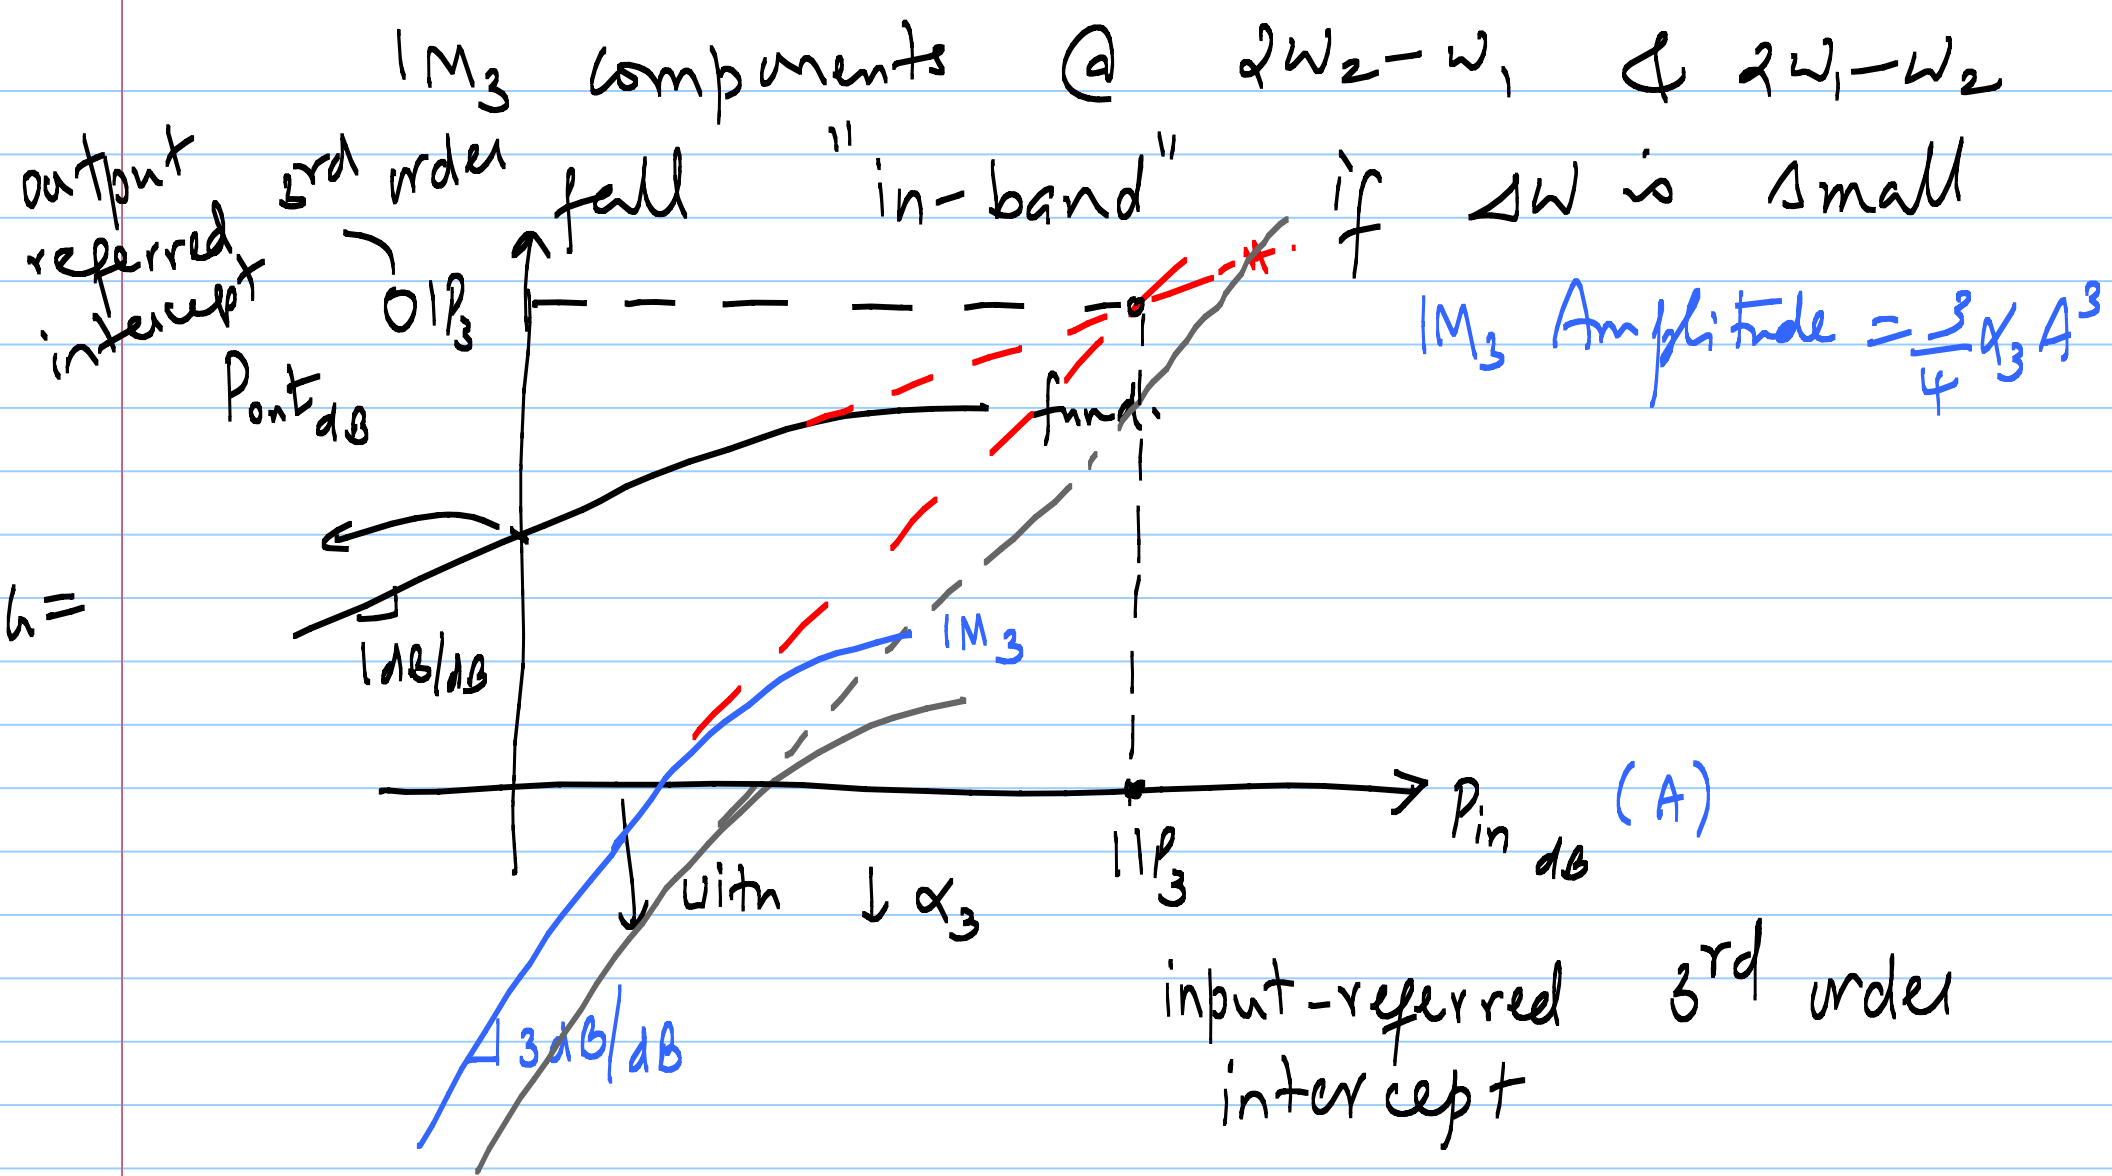 IM₃ components @ 2ω₂-ω₁ & 2ω₁-ω₂
fall "in-band" if Δω is small
output
referred 3rd order
intercept
OIP₃
Pout dB
IM₃ Amplitude = 3/4 α₃ A³
fund.
1dB/dB
IM₃
Pin dB (A)
IIP₃
with ↓ α₃
3dB/dB
input-referred 3rd order
intercept